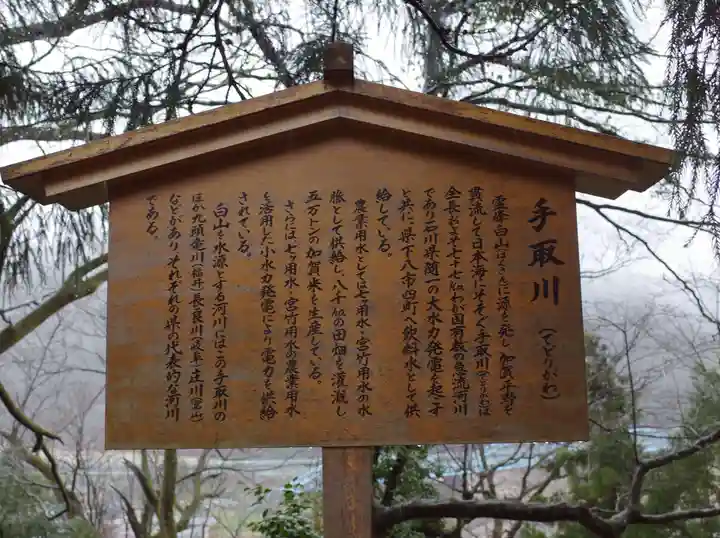 手取川（てどりがわ）
霊峰白山（はくさん）に源を発し、加賀平野を
貫流して日本海にそそぐ手取川（てどりがわ）は
全長およそ七十七㎞、わが国有数の急流河川
であり石川県随一の大水力発電を起こす
と共に、県下八市四町へ飲料水として供
給している。
農業用水としては七ヶ用水・宮竹用水の水
脈として供給し、八千㎢の田畑を灌漑し
五万トンの加賀米を生産している。
さらには、七ヶ用水・宮竹用水の農業用水
を活用した小水力発電により電力も供給
されている。
白山を水源とする河川にはこの手取川の
ほか九頭竜川（福井）・長良川（岐阜）・庄川（富山）
などがあり、それぞれの県の代表的な河川
である。